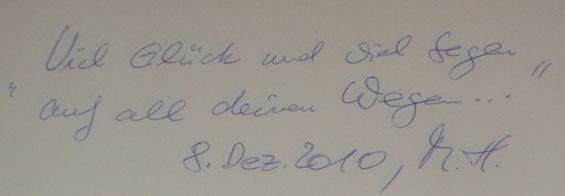 Viel Glück und viel Segen
" auf all deinen Wegen... "
8. Dez. 2010, M.H.